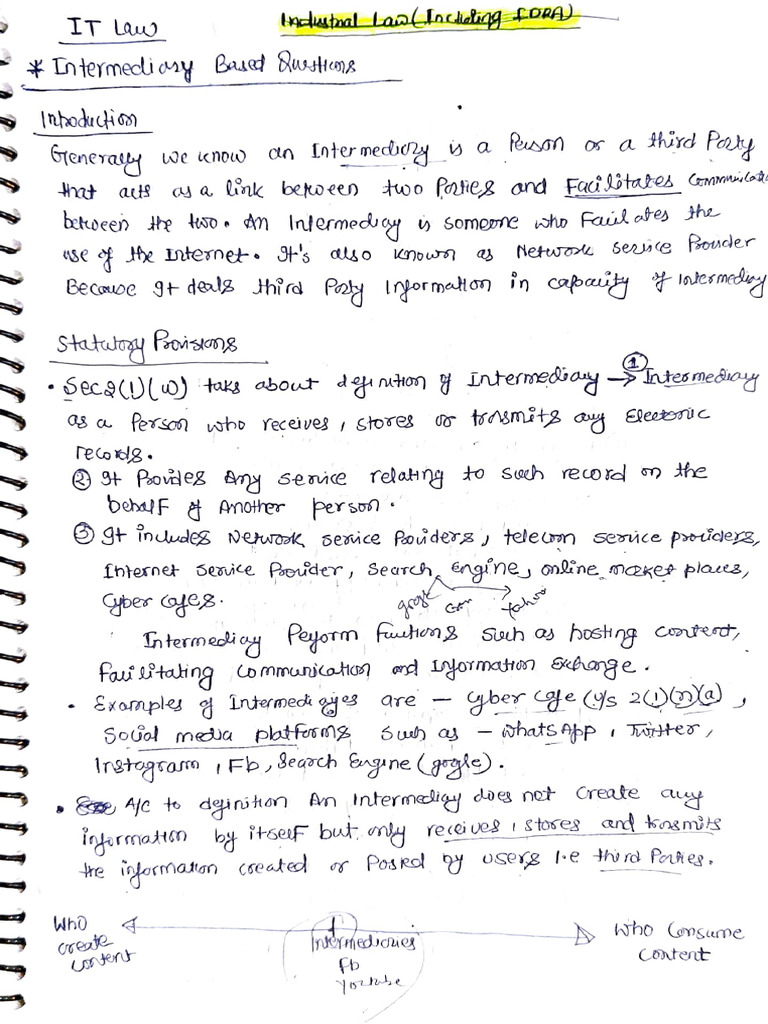 IT Law
Industrial Law (Including IDRA)
* Intermediary Based Questions
Introduction
Generally we know an Intermediary is a Person or a third Party
that acts as a link between two Parties and Facilitates Communicatio
between the two. An Intermediay is someone who Failates the
use of the Internet. It's also known as Network Service Provider
Because It deals third Party Information in capacity of Intermediay
Statutory Provisions
• Sec 2(1)(w) taks about definition of Intermediary → ① Intermediary
as a Person who receives, stores or transmits any Electronic
records.
② It Provides Any service relating to such record on the
behalf of Another person.
③ It includes Network Service Providers, telecom service providers,
Internet Service Provider, Search Engine, online market places,
Cyber cafes.
google
Yahoo
Intermediay Perform Functions such as hosting content,
Facilitating communication and Information Exchange.
• Examples of Intermediaryes are – Cyber Cafe (u/s 2(1)(n)(a),
Social media platforms such as – WhatsApp, Twitter,
Instagram, Fb, Search Engine (google).
• A/C to definition An Intermediay does not create any
information by itself but only receives, stores and transmits
the information created or Posted by users i.e third Parties.
Who create content
Intermediaries
Fb
Youtube
Who Consume Content